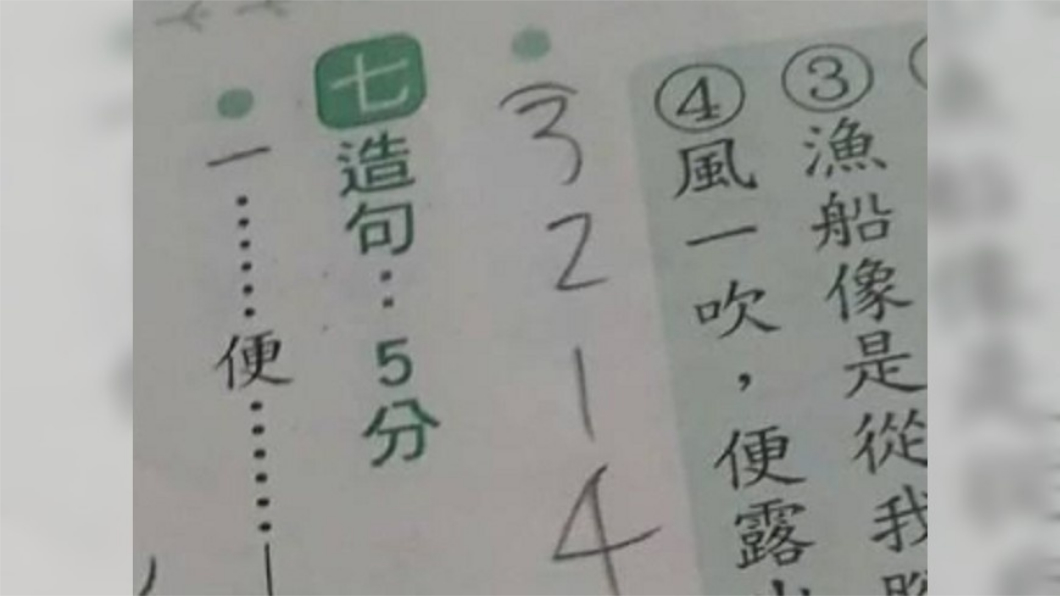 ③漁船像是從我
④風一吹，便露
3214
七 造句：5分
一……便……